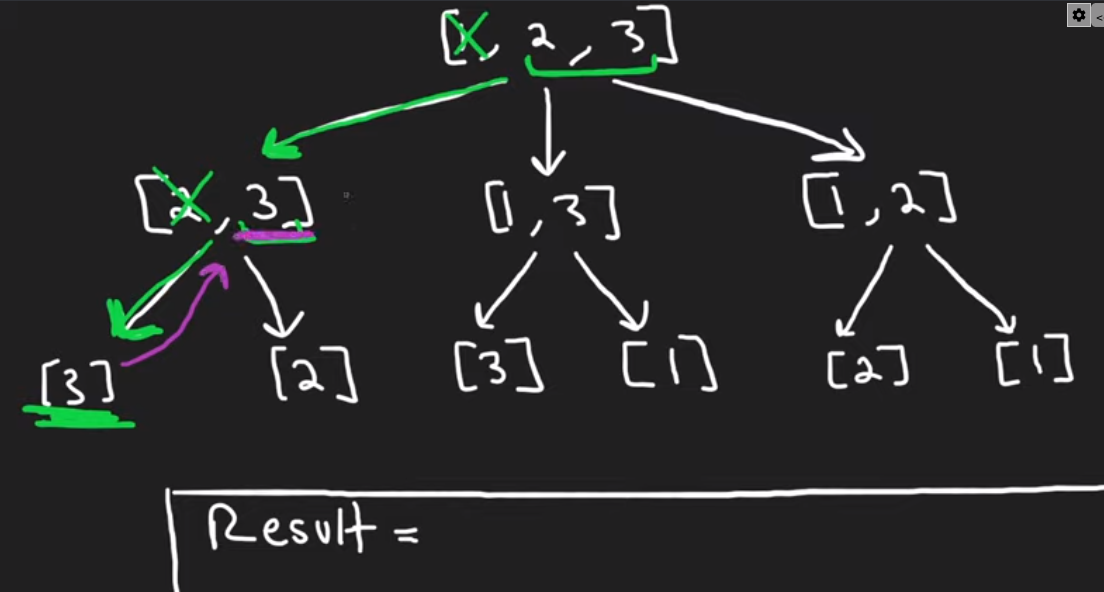 [1, 2, 3]
[2, 3] [1, 3] [1, 2]
[3] [2] [3] [1] [2] [1]
Result =